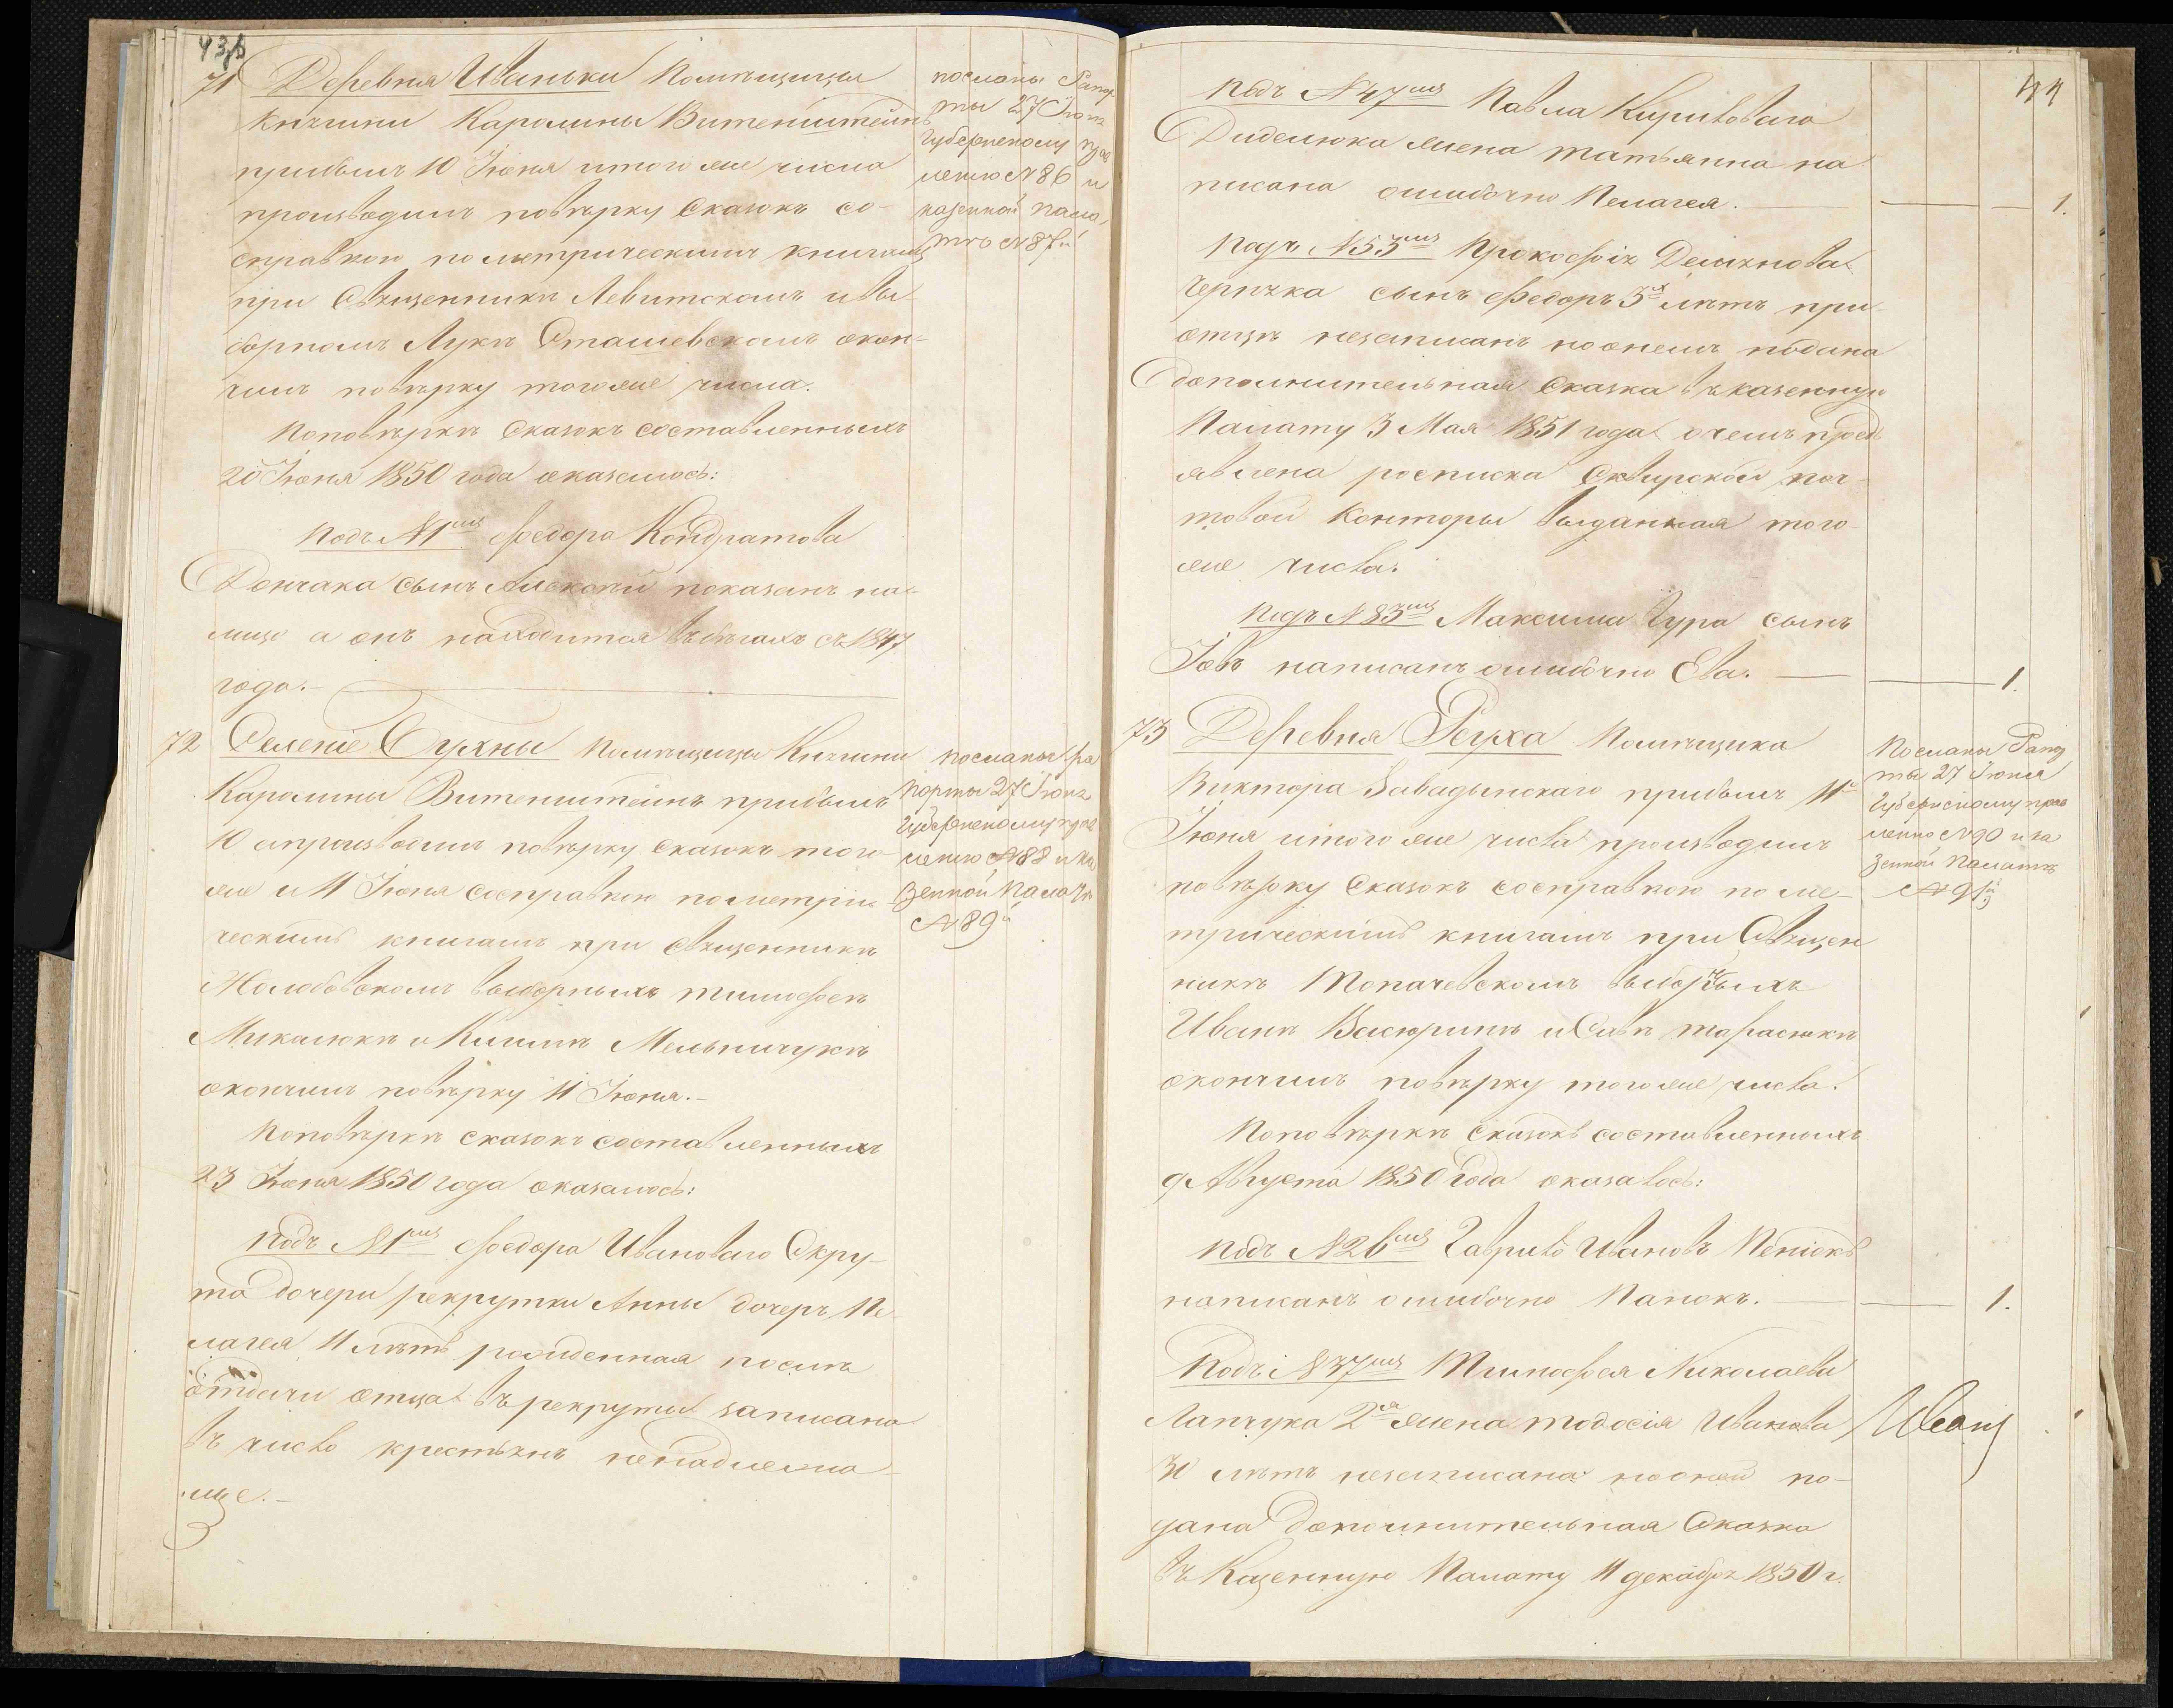 43,б
71 Деревня Иваньки Помѣщицы
Княгини Каролины Витенштейнъ
прибылъ 10 Іюня итого же числа
производилъ повѣрку Сказокъ со-
справкою по метрическимъ книгамъ
при Священникѣ Левитскомъ и вы-
борномъ Лукѣ Сташевскомъ окон-
чилъ повѣрку того же числа.
Поповѣркѣ Сказокъ составленныхъ
20 Іюня 1850 года оказалось:
подъ №1мъ Федора Кондратова
Дончака сынъ показанъ на
лицо а онъ находится въ бѣгахъ съ 1847
года.
посланы Рапор
ты 27 Іюня
Губернскому прав
ленію №86 и
казенной пала,
тѣ №87й
72 Селеніе Сухны Помѣщицы Княгини
Каролины Витенштейнъ прибылъ
10 а производилъ повѣрку сказокъ того
же и 11 Іюня сосправкою по метри
ческимъ книгамъ при Священникѣ
Жолобовскомъ выборныхъ тимофеѣ
Микалюкѣ и Климѣ Мельничукѣ
окончилъ повѣрку 11 Іюня.-
Поповѣркѣ сказокъ составленныхъ
23 Іюня 1850 года оказалось:
подъ №1мъ Федора Иванова Окру-
та дочери рекрутки Анны дочеръ Пе
лагея 11 лѣтъ рожденная послѣ
отдачи отца въ рекруты записана
въ число крестьянъ ненадлежа-
ще.-
посланы ра
порты 27 Іюня
Губернскому прав
ленію №88 и ка
зенной палатѣ
№89й
44
подъ №47мъ Павла Кирилового
Диделюка жена татьянна на
писана ошибочно Пелагея. 1.
подъ №55мъ Прокофія Демянова
сынъ Федоръ 3х лѣтъ при
отцѣ незаписанъ но о немъ подана
дополнительная Сказка въ казенную
Палату 3 Мая 1851 года о чемъ предъ
явлена росписка Сквирской поч-
товой Конторы выданная того-
же числа.
подъ №83мъ Максима Гура сынъ
Іовъ написанъ ошибочно Ева. 1.
73 Деревня Реуха Помѣщика
Виктора Завадынскаго прибылъ 11го
Іюня итого же числа производилъ
повѣрку Сказокъ сосправкою по ме-
трическимъ книгамъ при Священ
никѣ Топачевскомъ выборныхъ
Иванѣ и Савѣ тарасюкѣ
окончилъ повѣрку того же числа.
Поповѣркѣ Сказокъ составленныхъ
9 Августа 1850 года оказалось:
подъ №26мъ Гаврило Ивановъ
написанъ ошибочно Панокъ. 1.
Подъ №37мъ Тимофея Николаева
Лапчука 2я жена тодосія Иванова
30 лѣтъ незаписана но о ней по-
дана дополнительная Сказка
въ Казенную Палату 11 декабря 1850 г.
Посланы Рапор
ты 27 Іюня
Губернскому прав
ленію №90 и ка
зенной Палатѣ
№91й